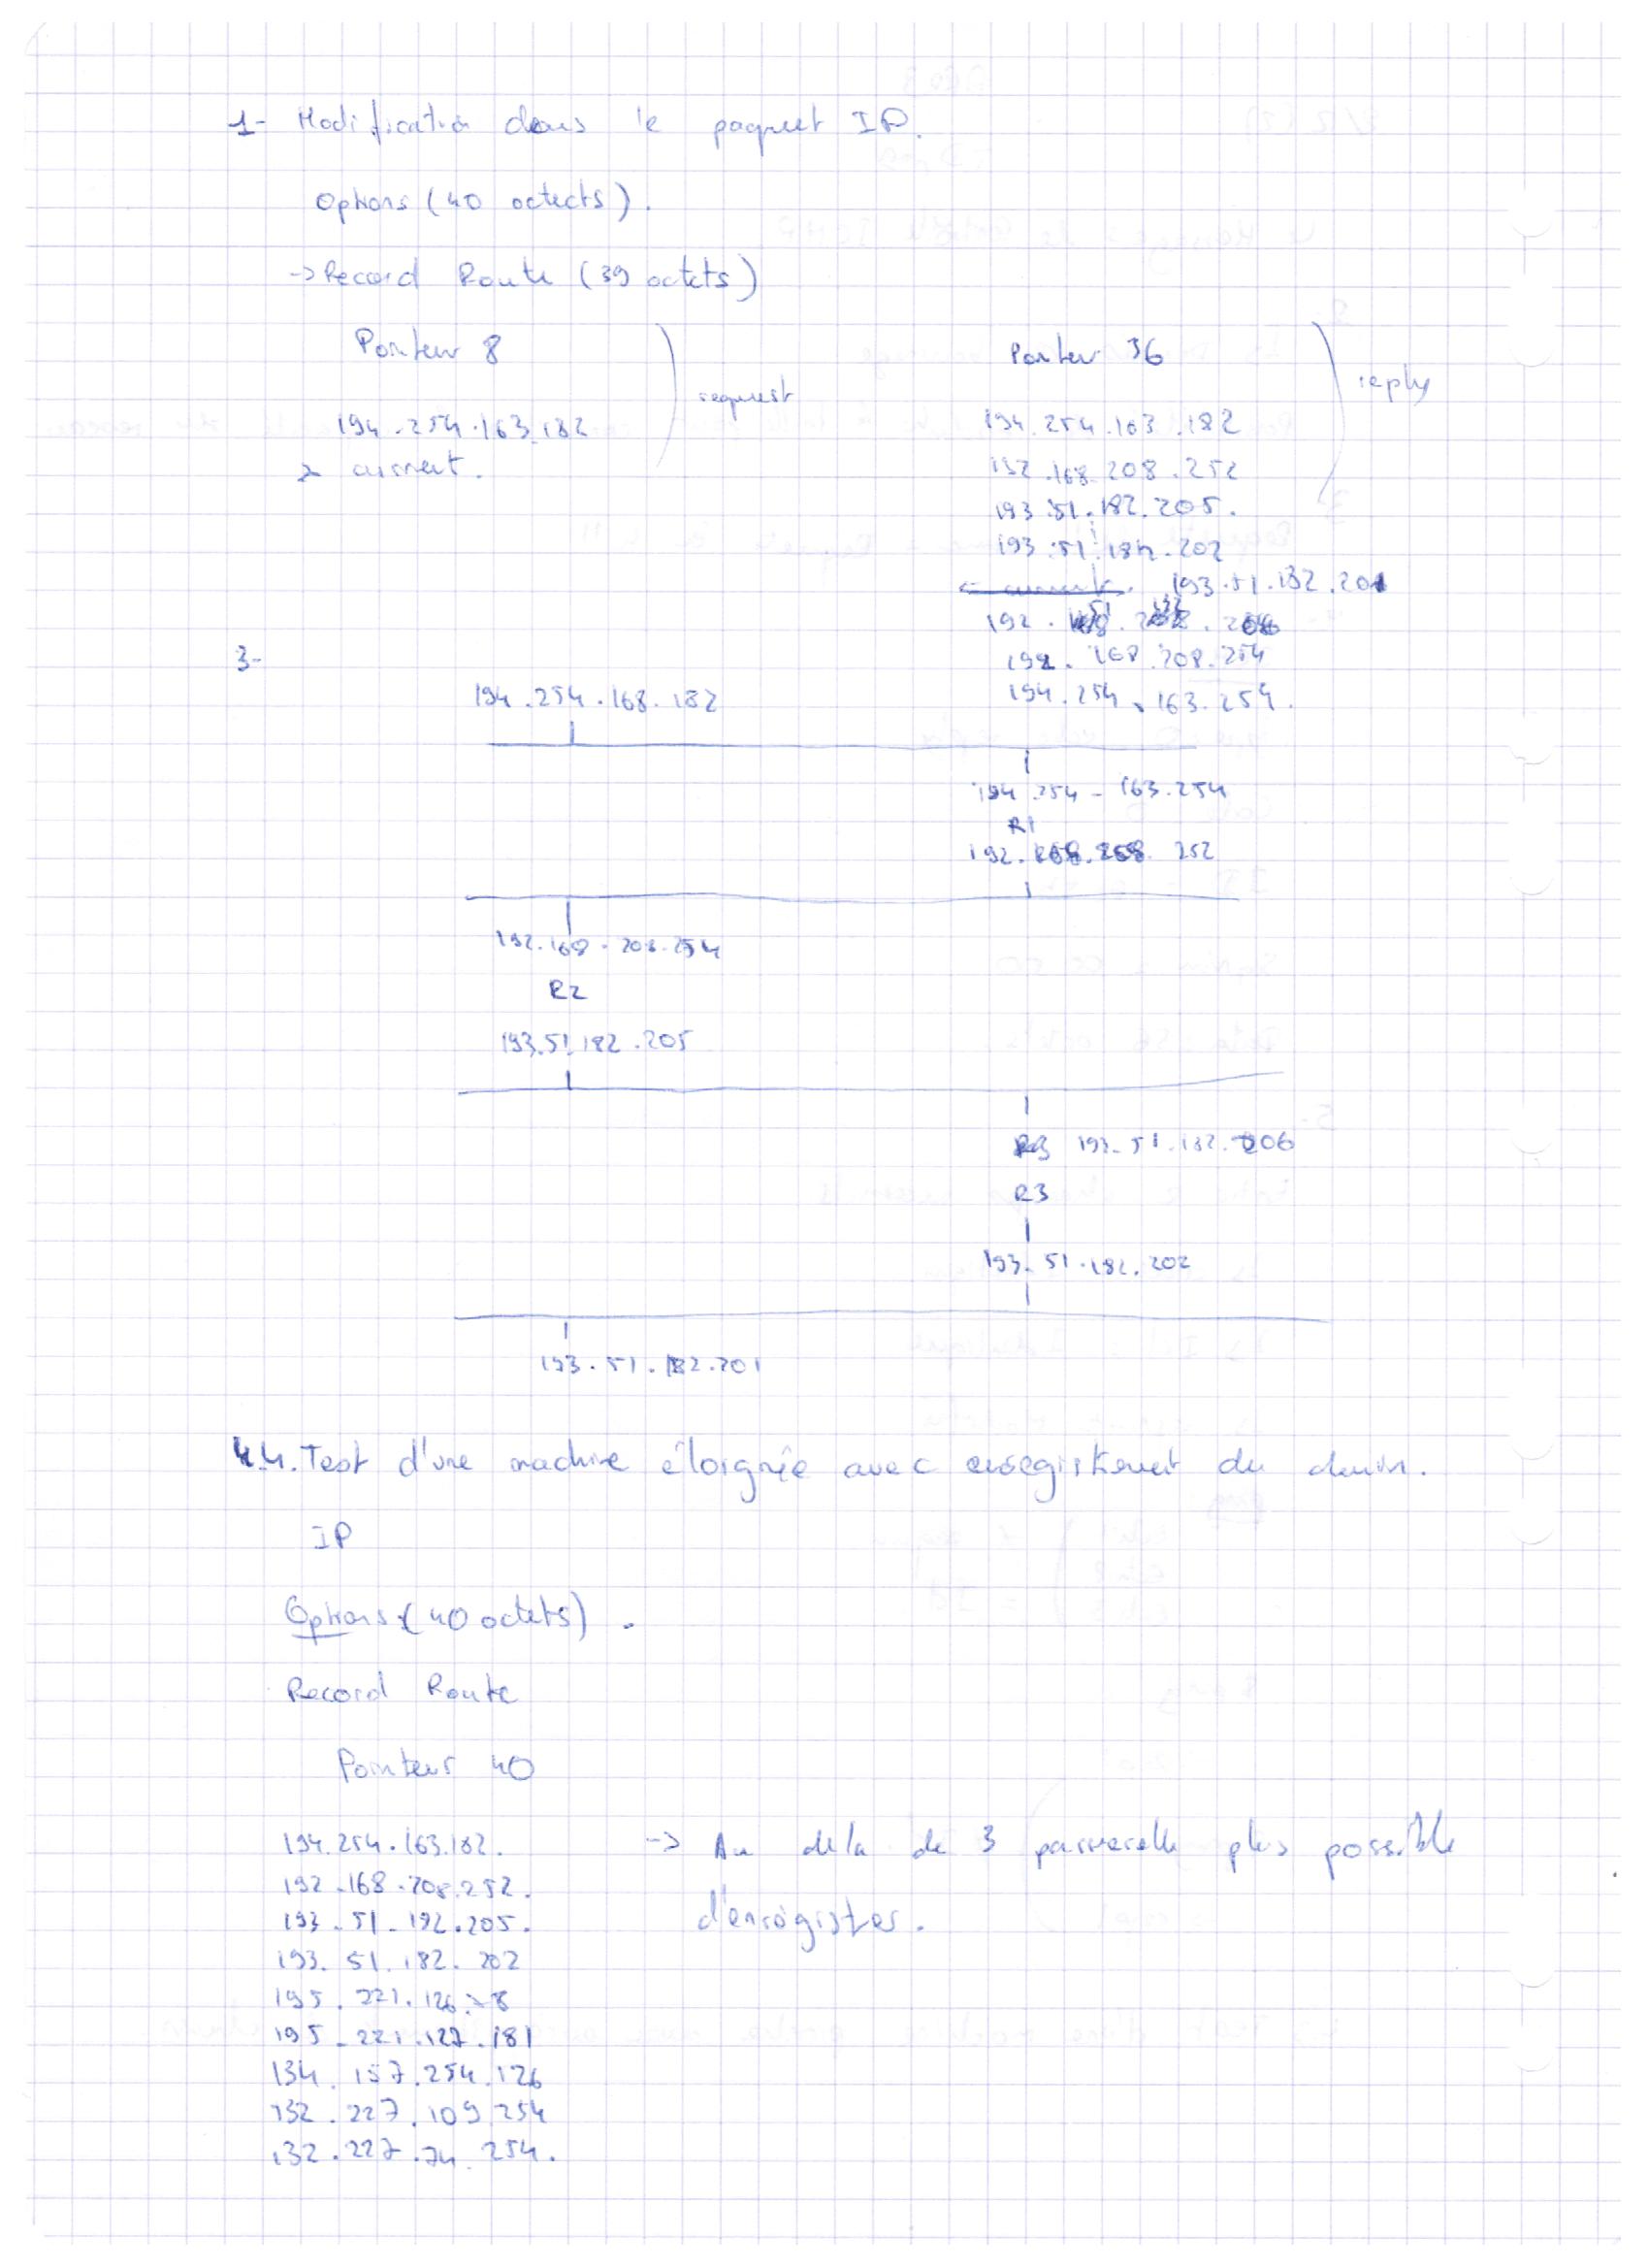 1- Modification dans le paquet IP.
Options (40 octects).
-> Record Route (39 octets)
Pointeur 8
194.254.163.182
request
Pointeur 36
194.254.163.182
192.168.208.252
193.51.182.205.
193.51.182.202
193.51.182.201
192.168.208.254
194.254.163.254.
reply
3-
194.254.168.182
194.254-163.254
R1
192.168.208.252
192.168.208.254
R2
193.51.182.205
193.51.182.206
R3
193.51.182.202
193.51.182.201
4.4. Test d'une machine éloignée avec enregistrement du chemin.
IP
Options (40 octets).
Record Route
Pointeur 40
194.254.163.182.
192.168.208.252.
193.51.192.205.
193.51.182.202
195.221.127.181
134.157.254.126
132.227.109.254
132.227.74.254.
-> Au dela de 3 passerelle plus possible
d'enregistrer.